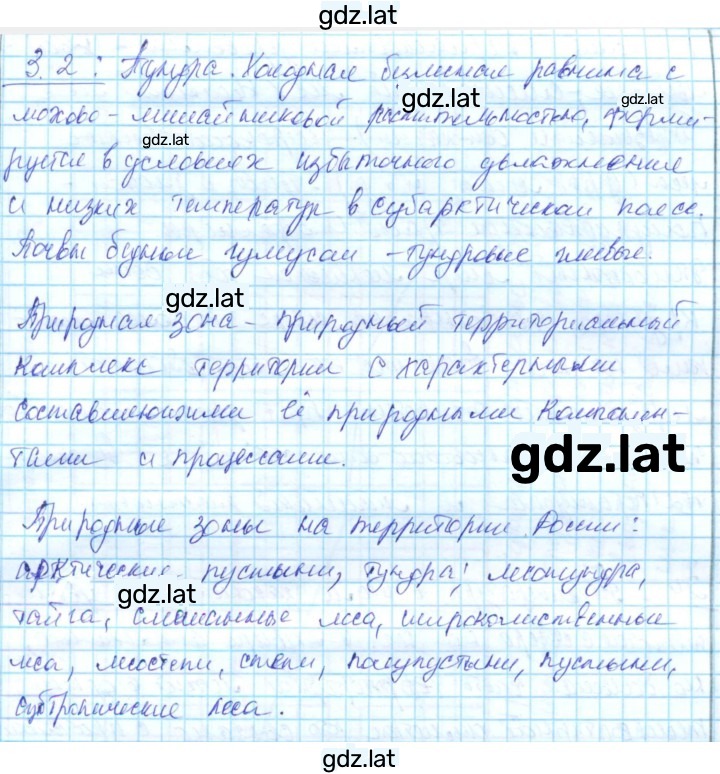 gdz.lat
3.2: Тундра. Холодная безлесная равнина с
gdz.lat
gdz.lat
мохово-лишайниковой растительностью, форми-
gdz.lat
руется в условиях избыточного увлажнения
и низких температур в субарктическом поясе.
Почвы бедные гумусом - тундровые глеевые.
gdz.lat
Природная зона - природный территориальный
комплекс территории с характерными
составляющими её природными компонен-
тами и процессами.
gdz.lat
Природные зоны на территории России:
арктические пустыни, тундра, лесотундра,
gdz.lat
тайга, смешанные леса, широколиственные
леса, лесостепи, степи, полупустыни, пустыни,
субтропические леса.
gdz.lat